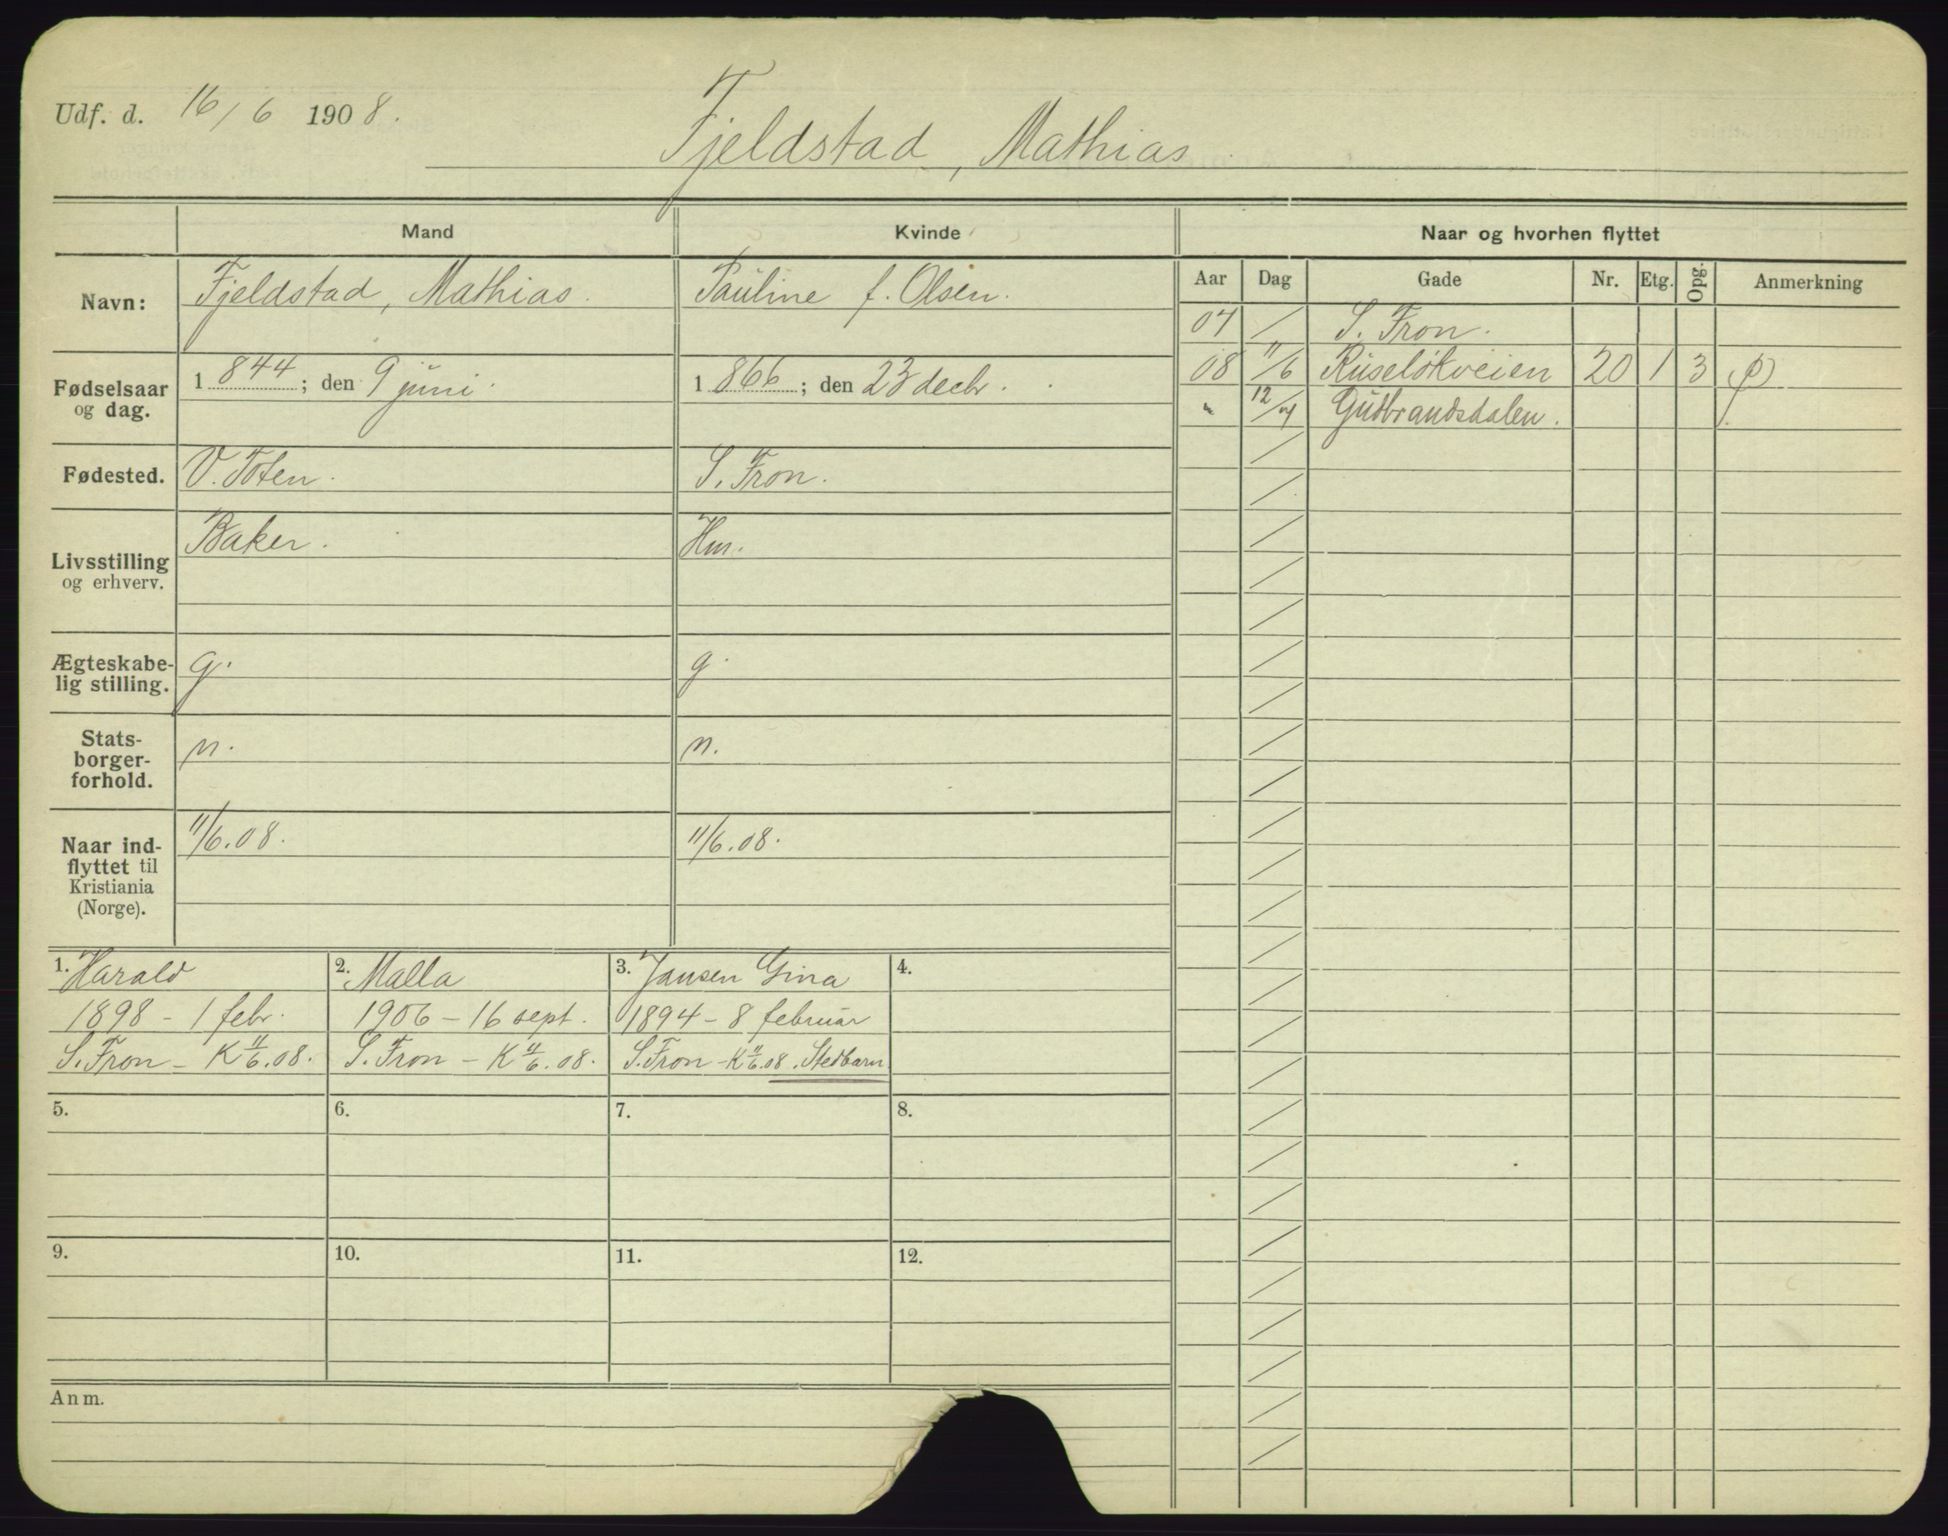 Udf. d. 16/6 1908.
Fjeldstad, Mathias
Mand Kvinde Naar og hvorhen flyttet
Navn: Fjeldstad, Mathias. Pauline f. Olsen.
Fødselsaar og dag. 1844; den 9 juni. 1866; den 23 decbr.
Fødested. V. Toten. S. Fron.
Livsstilling og erhverv. Baker. Hm.
Ægteskabe-
lig stilling. g. g.
Stats-
borger-
forhold. n. n.
Naar ind-
flyttet til
Kristiania
(Norge). 11/6.08. 11/6.08.
Aar Dag Gade Nr. Etg. Opg. Anmerkning
07 / S. Fron.
08 11/6 Ruseløkveien 20 1 3
" 12/07 Gudbrandsdalen.
1. Harald
1898 - 1 febr.
S. Fron - K 11/6.08.
2. Malla
1906 - 16 sept.
S. Fron - K 11/6.08.
3. Jansen Gina
1894 - 8 februar
S. Fron - K 11/6.08. Stedbarn.
4.
5. 6. 7. 8.
9. 10. 11. 12.
Anm.